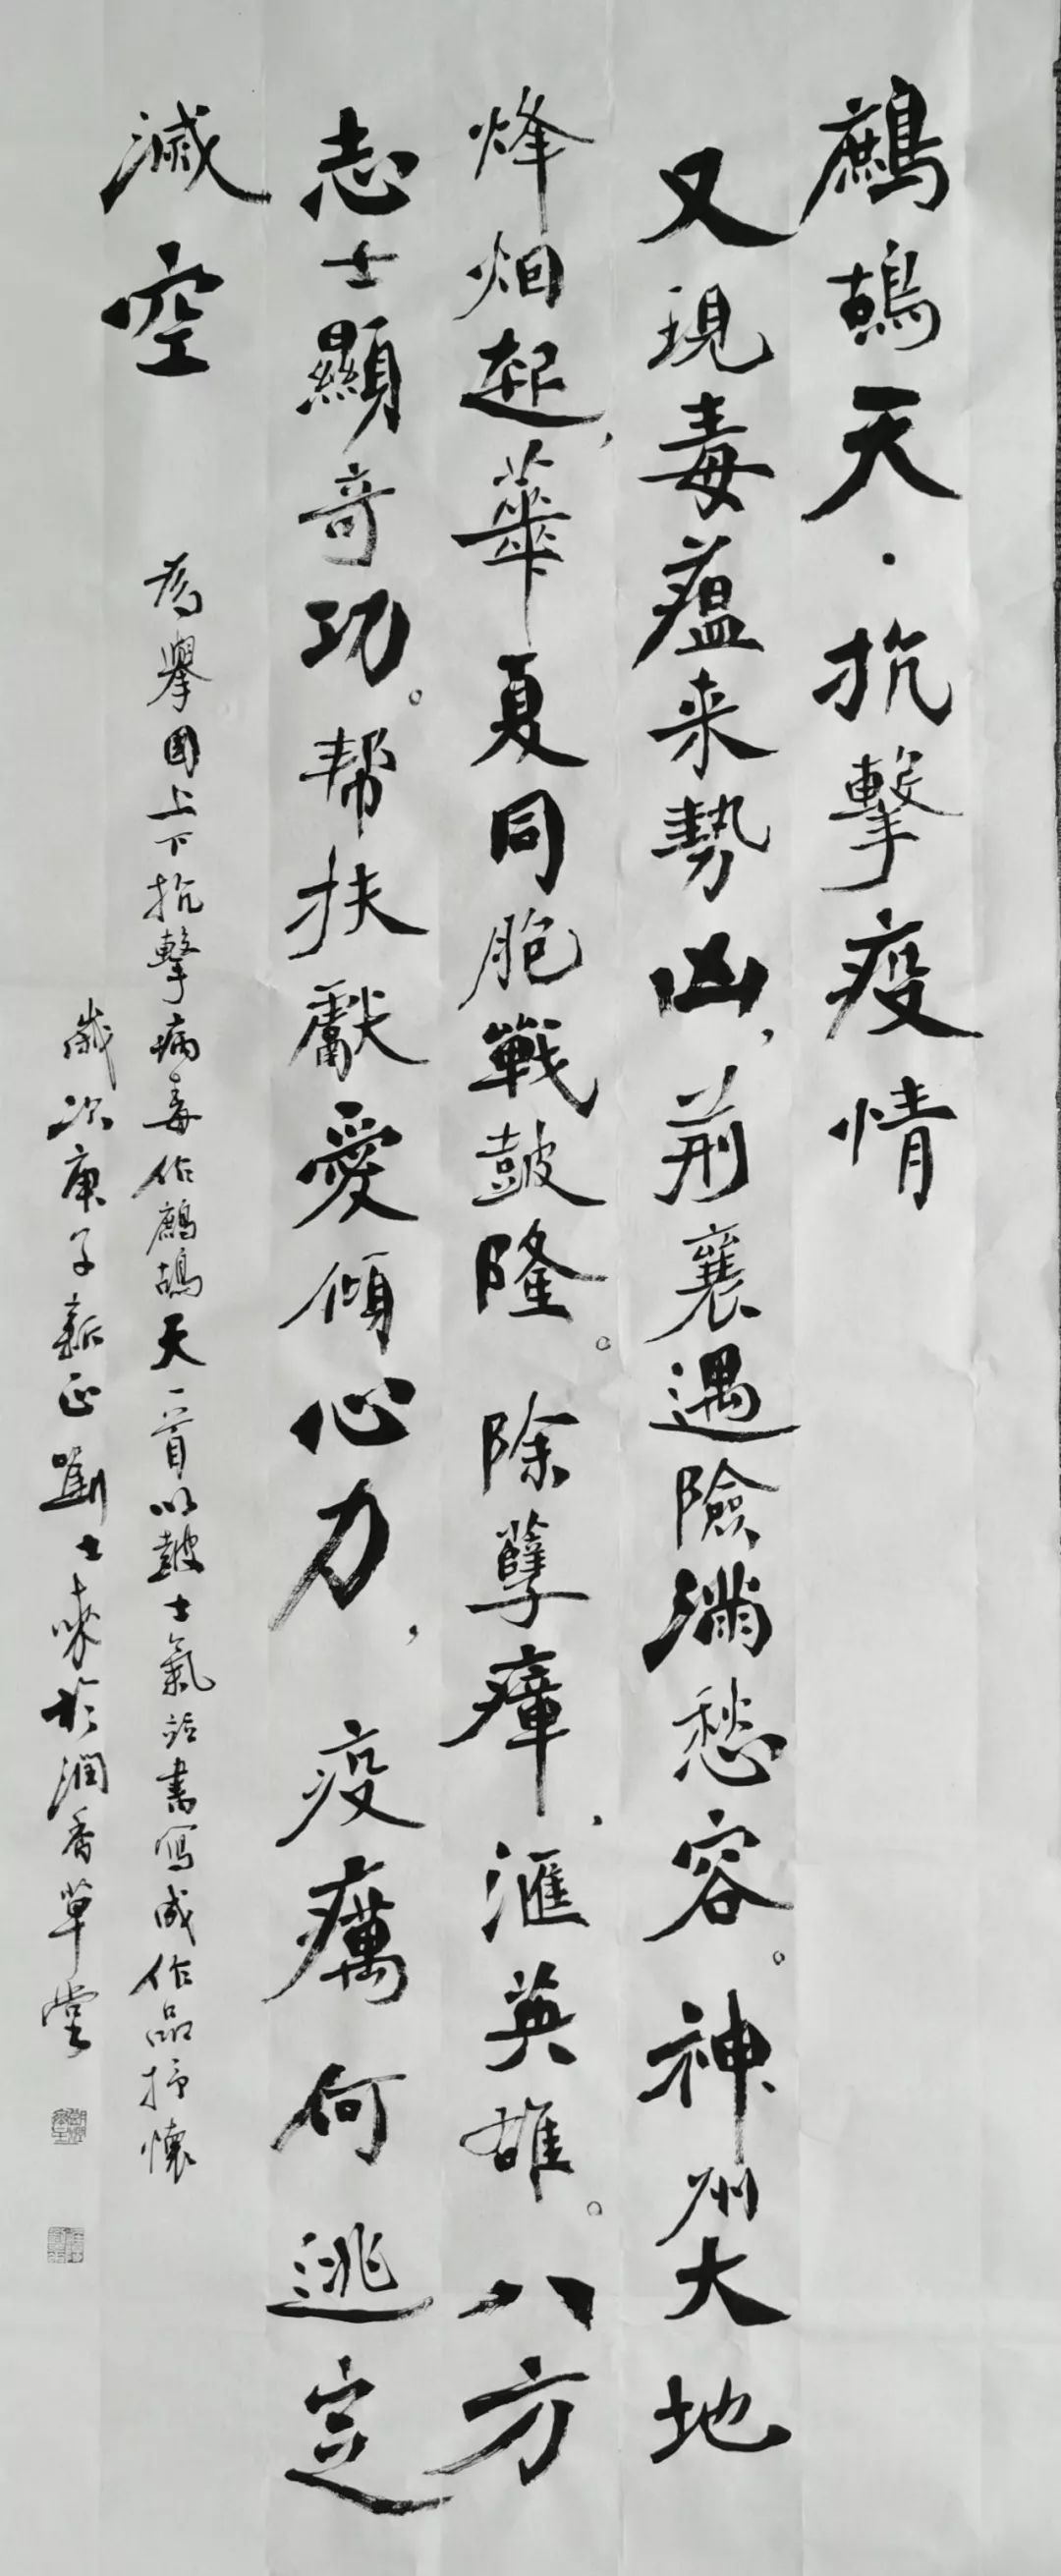 鷓鴣天·抗擊疫情
又現毒瘟来勢凶，荊襄遇險滿愁容。神州大地
烽烟起，華夏同胞戰鼓隆。除孽瘴，滙英雄。八方
志士顯奇功。帮扶獻愛傾心力，疫癘何逃定
滅空
為舉國上下抗擊病毒作鷓鴣天一首以鼓士氣 書寫成作品抒懷
歲次庚子新正劉士來於潤香草堂